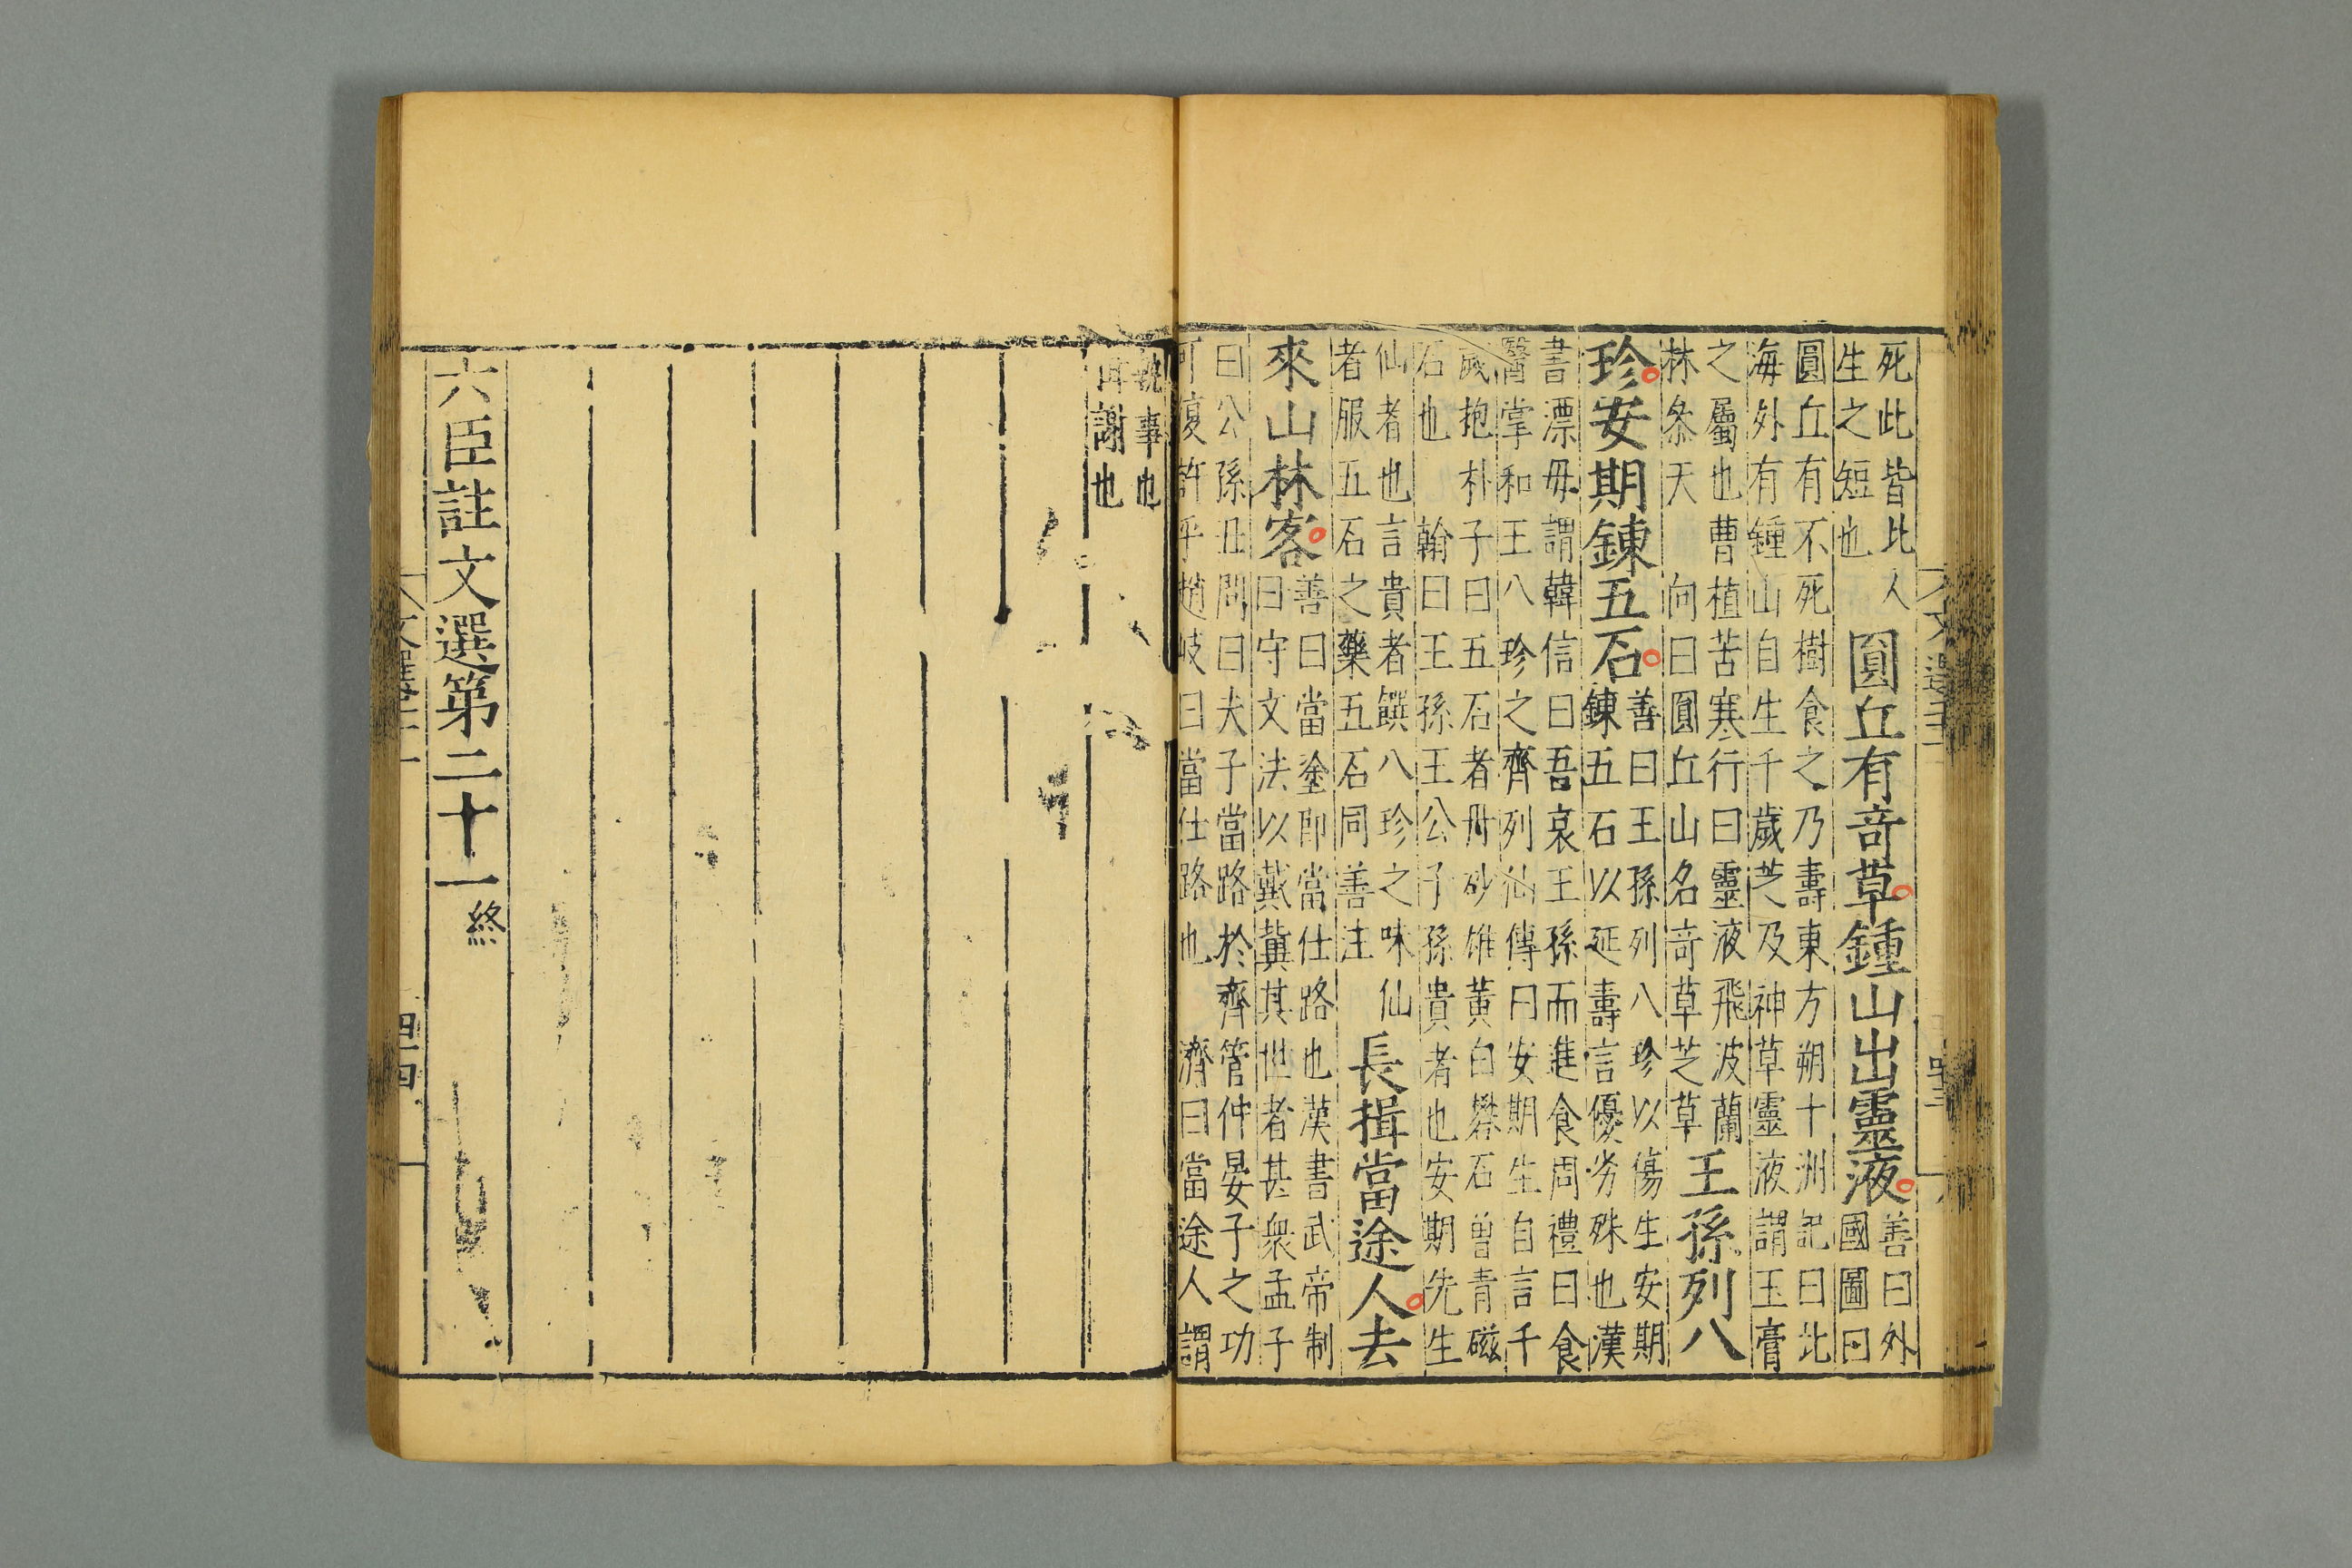 死此皆比人
生之短也
圓丘有竒草鍾山出靈液
善曰外
國圖曰
圓丘有不死樹食之乃壽東方朔十洲記曰北
海外有鍾山自生千歲芝及神草靈液謂玉膏
之屬也曹植苦寒行曰靈液飛波蘭
林叅天 向曰圓丘山名竒草芝草
王孫列八
珍安期鍊五石
善曰王孫列八珍以傷生安期
鍊五石以延壽言優劣殊也漢
書漂母謂韓信曰吾哀王孫而進食周禮曰食
醫掌和王八珍之齊列仙傳曰安期生自言千
歲抱朴子曰五石者丹砂雄黃白礬石曾青磁
石也 翰曰王孫王公子孫貴者也安期先生
仙者也言貴者饌八珍之味仙
者服五石之藥五石同善注
長揖當途人去
來山林客
善曰當塗即當仕路也漢書武帝制
曰守文法以戴冀其世者甚衆孟子
曰公孫丑問曰夫子當路於齊管仲晏子之功
可復許乎趙岐曰當仕路也 濟曰當途人謂
執事也
謝也
六臣註文選第二十一終
四十四